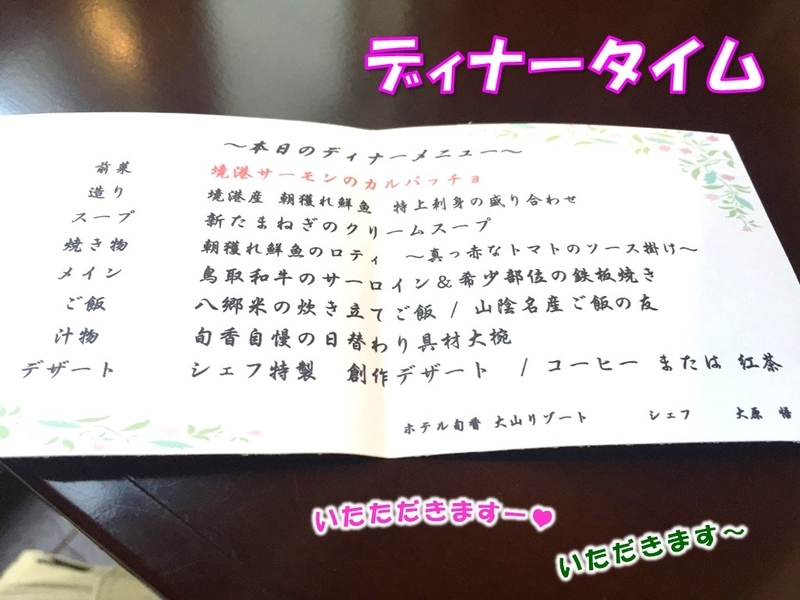 ディナータイム
～本日のディナーメニュー～
前菜 境港サーモンのカルパッチョ
造り 境港産 朝獲れ鮮魚 特上刺身の盛り合わせ
スープ 新たまねぎのクリームスープ
焼き物 朝獲れ鮮魚のロティ ～真っ赤なトマトのソース掛け～
メイン 鳥取和牛のサーロイン&希少部位の鉄板焼き
ご飯 八郷米の炊き立てご飯 / 山陰名産ご飯の友
汁物 旬香自慢の日替わり具材大椀
デザート シェフ特製 創作デザート / コーヒー または 紅茶
ホテル旬香 大山リゾート シェフ 大原 悟
いたただきますー♥
いただきます～